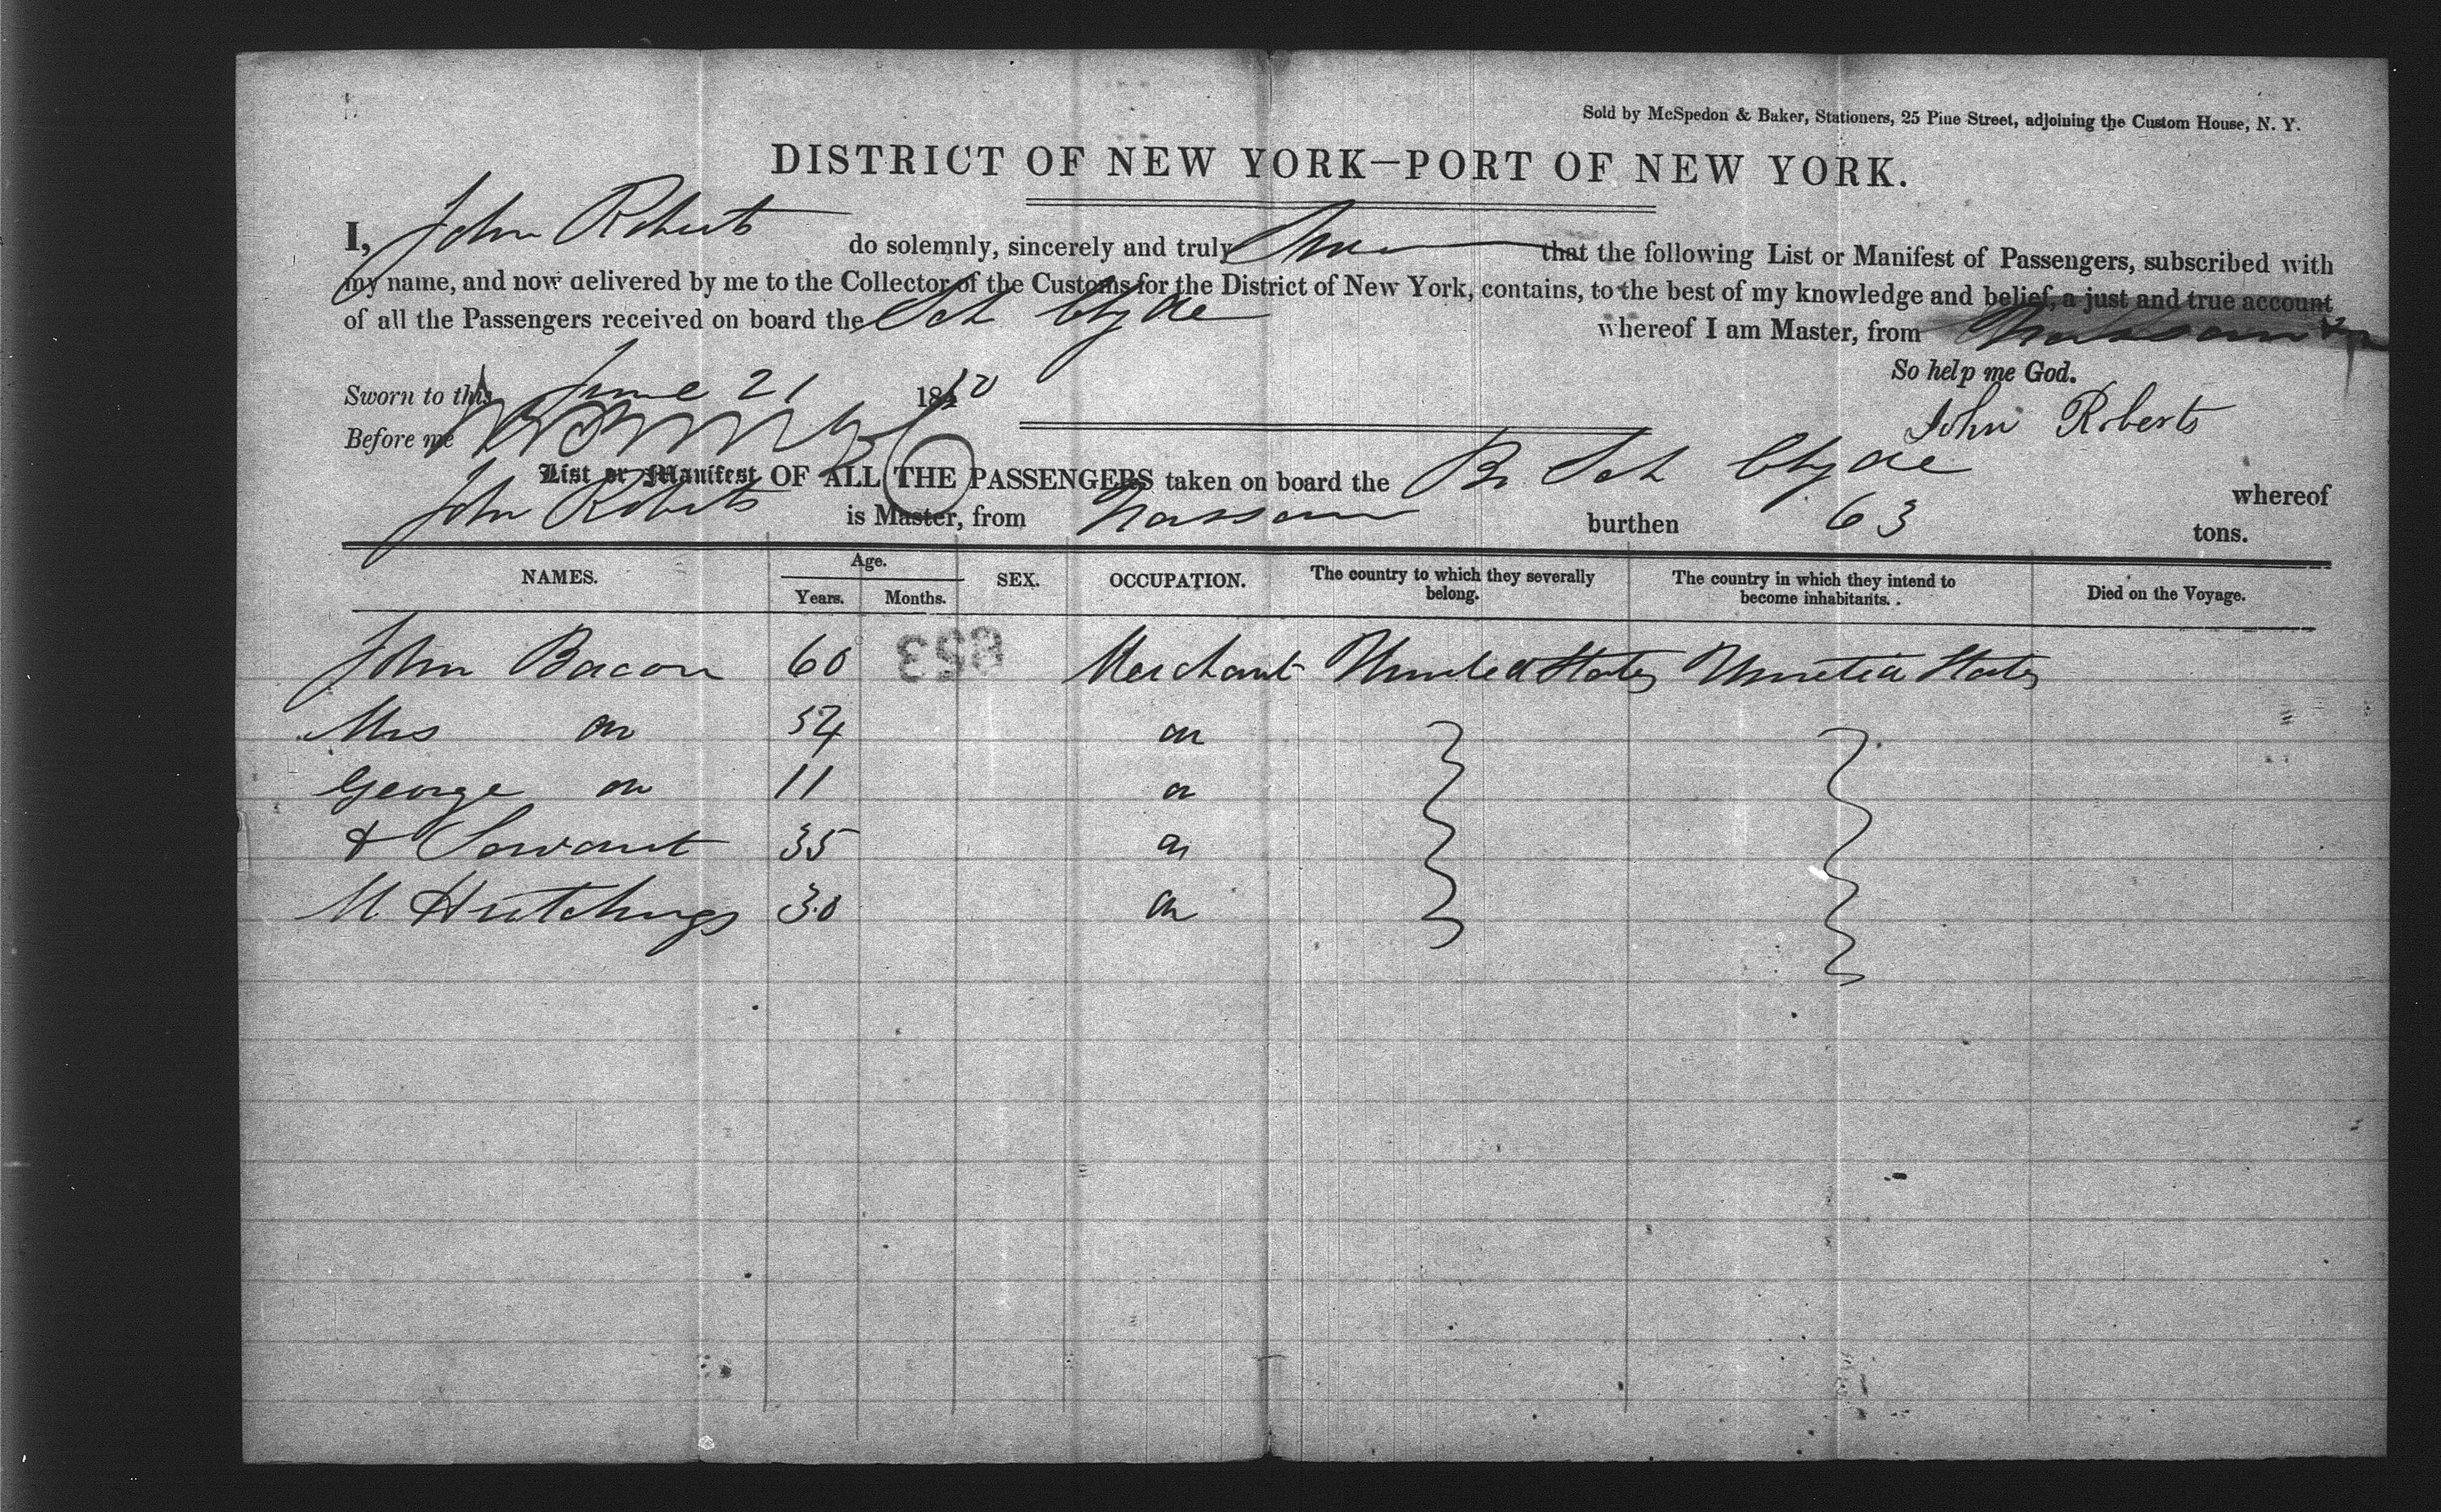 Sold by McSpedon & Baker, Stationers, 25 Pine Street, adjoining the Custom House, N. Y.
DISTRICT OF NEW YORK—PORT OF NEW YORK.
I, John Roberts do solemnly, sincerely and truly that the following List or Manifest of Passengers, subscribed with
my name, and now delivered by me to the Collector of the Customs for the District of New York, contains, to the best of my knowledge and belief, a just and true account
of all the Passengers received on board the Sch Clyde whereof I am Master, from
So help me God.
Sworn to this June 21 1850
John Roberts
Before me
List or Manifest OF ALL THE PASSENGERS taken on board the Br Sch Clyde whereof
John Roberts is Master, from Nassau burthen 63 tons.
NAMES. Age. SEX. OCCUPATION. The country to which they severally belong. The country in which they intend to become inhabitants. Died on the Voyage.
Years. Months.
John Bacon 60 853 Merchant United States United States
Mrs do 54 do
George do 11 do
& Servant 35 do
M Hutchings 30 do